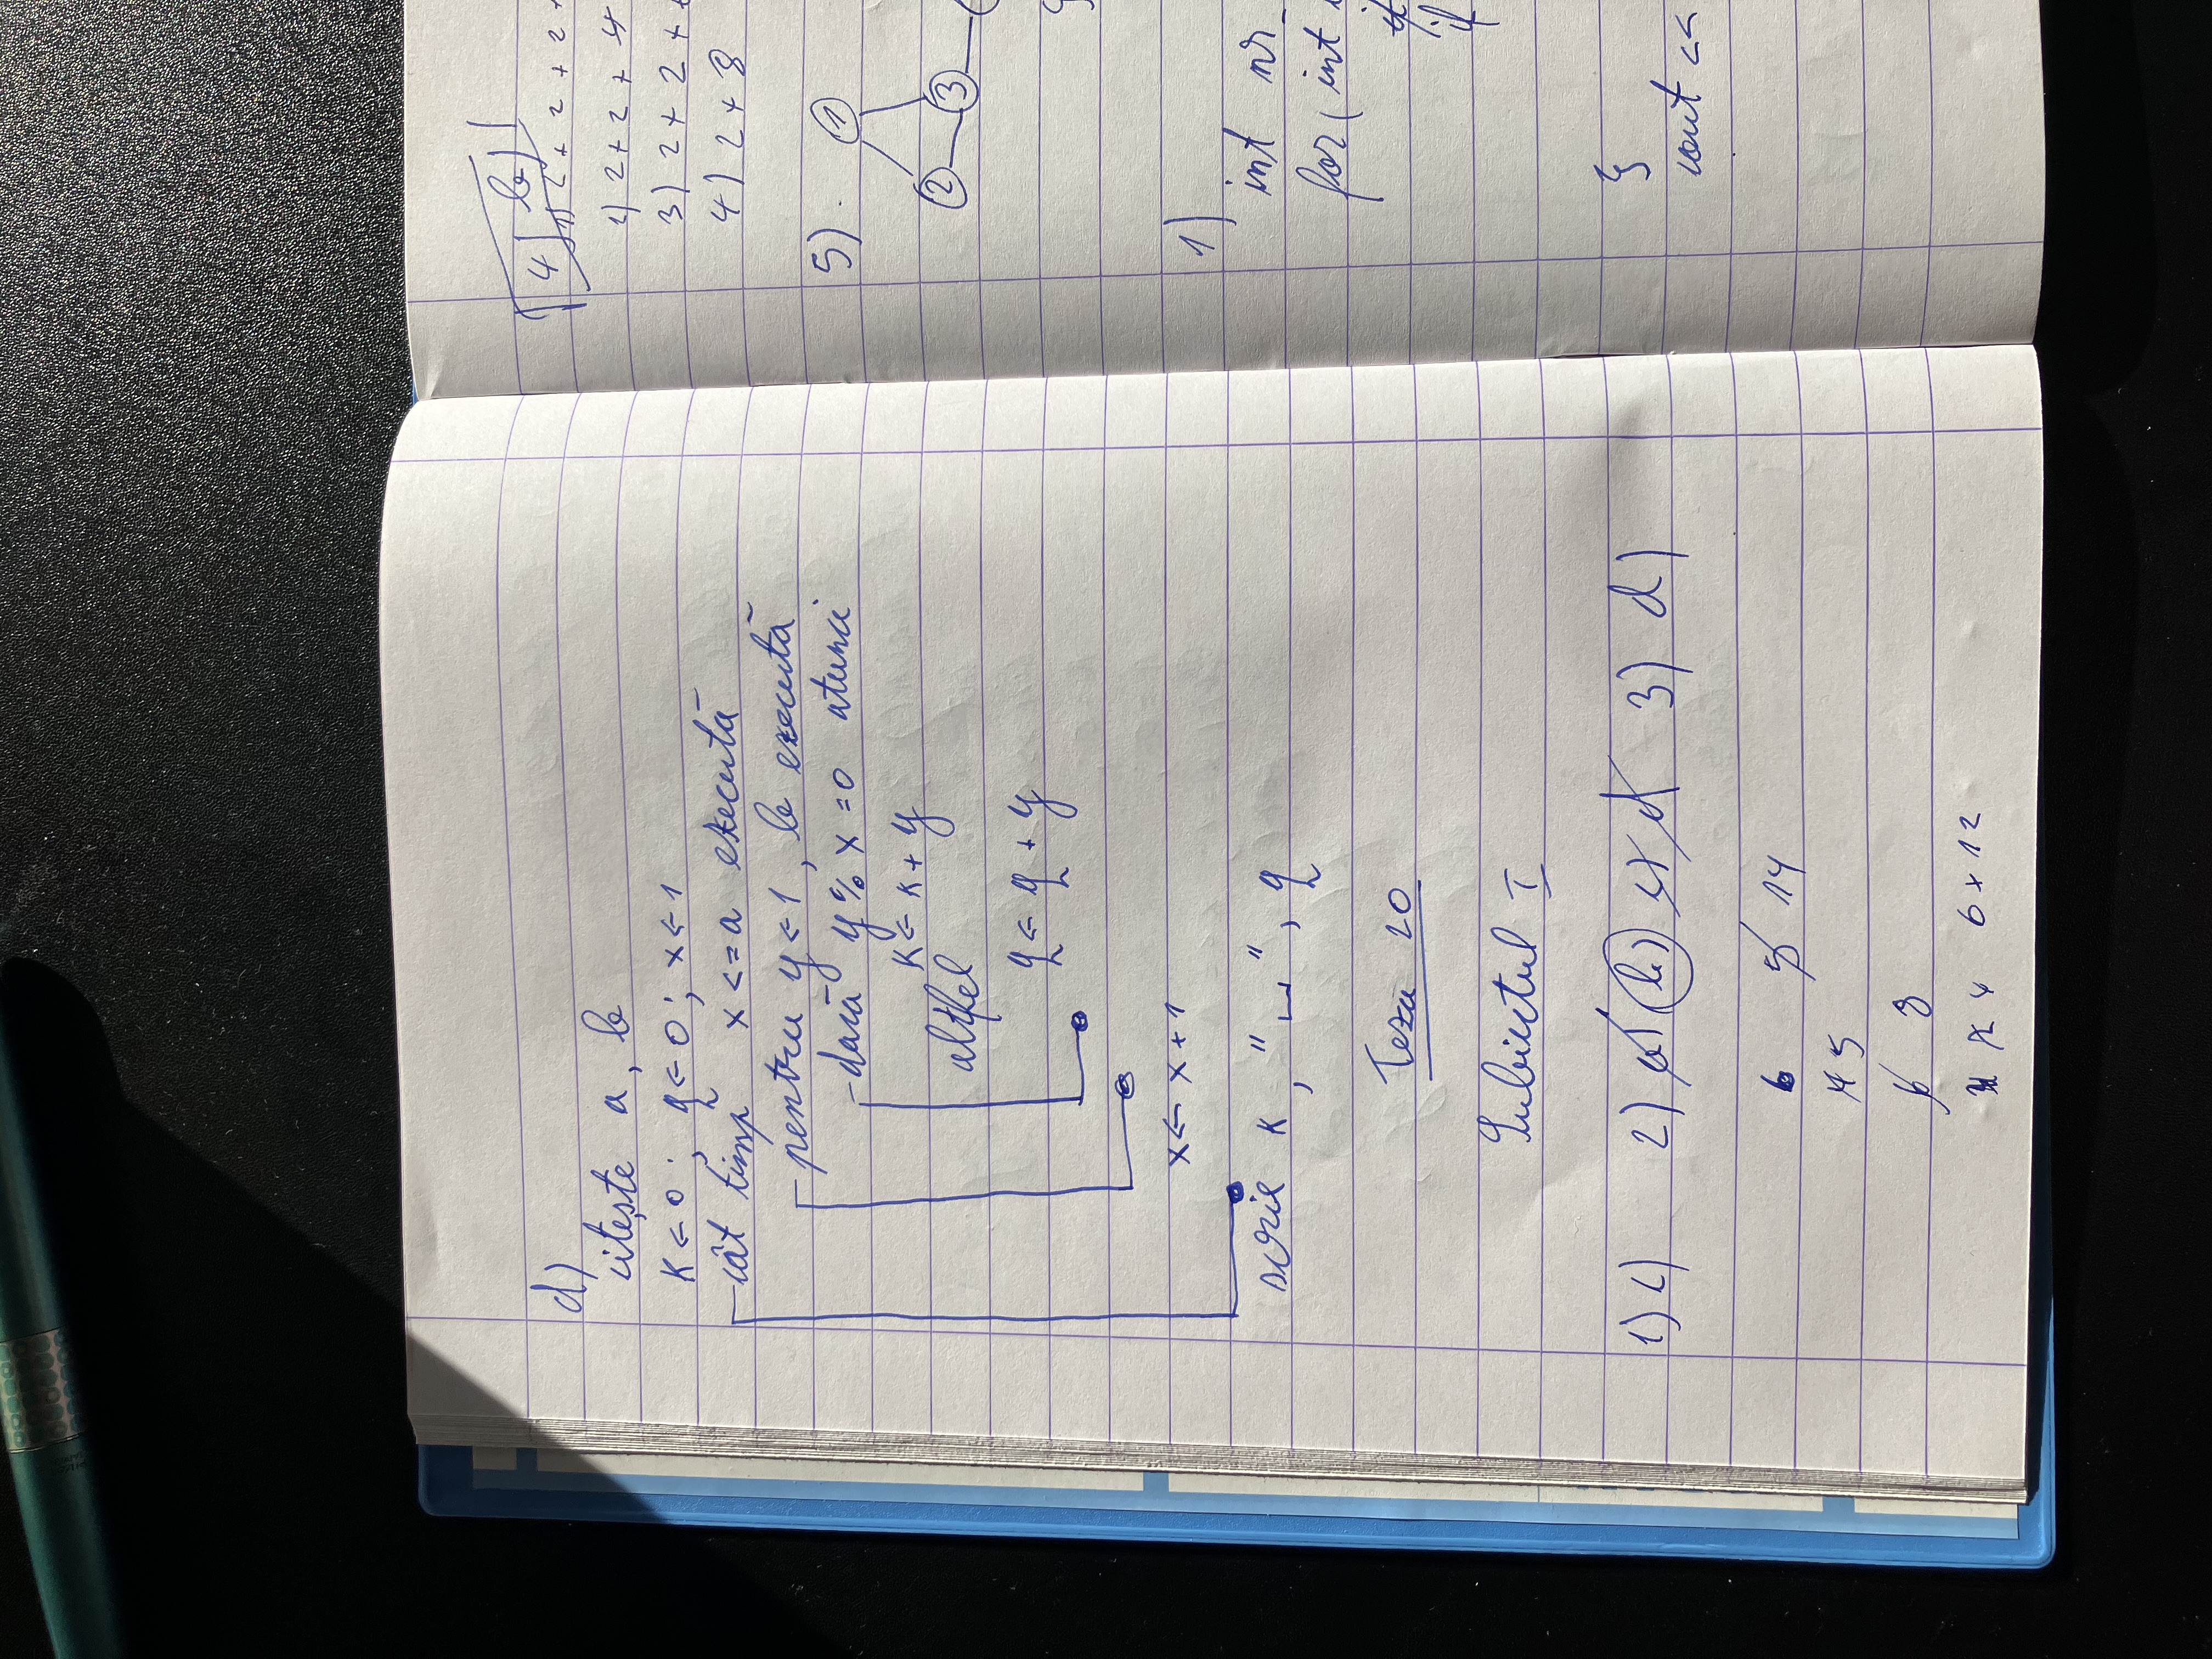 d)
citește a, b
k ← 0; q ← 0; x ← 1
cât timp x <= a execută
pentru y ← 1, b execută
dacă y % x = 0 atunci
k ← k + y
altfel
q ← q + y
x ← x + 1
scrie k, "⎵", q
Teza 20
Subiectul I
1) c) 2) a) b) c) d 3) d)
6 5 14
4 5
6 8
4 2 4 6 x 12
4) b)
1) 2 + 2 + 2 +
2) 2 + 2 + 4
3) 2 + 2 +
4) 2 + 8
5)
1
2 3
1)
int nr_
for( int
if
}
cout <<